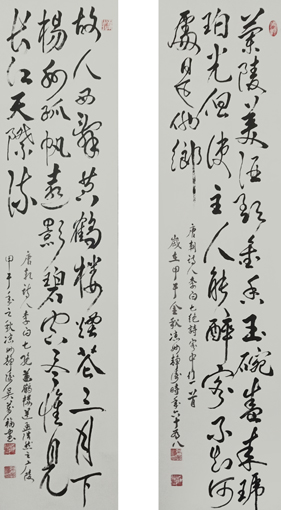 蘭陵美酒郁金香玉碗盛来琥
珀光但使主人能醉客不知何
處是他鄉
唐朝詩人李白七絕詩客中作一首
歲在甲午金秋凉州時年六十有八
故人西辭黄鶴楼煙花三月下
楊州孤帆遠影碧空盡惟見
长江天際流
唐朝詩人李白七絕黄鶴楼送孟浩然之廣陵
甲午年之秋凉州